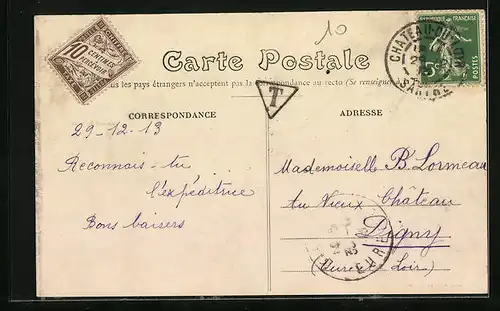 10
Carte Postale
us les pays étrangers n'acceptent pas la correspondance au recto (Se renseigner
CORRESPONDANCE
ADRESSE
29-12-13
Reconnais-tu
l'expéditrice
Bons baisers
Mademoiselle B. Lormeau
au Vieux Château
Digny
(Eure & Loir)
T
10
CENTIMES
A PERCEVOIR
RÉPUBLIQUE FRANÇAISE
5c
POSTES
CHATEAU-DU-LOIR
SARTHE
EURE